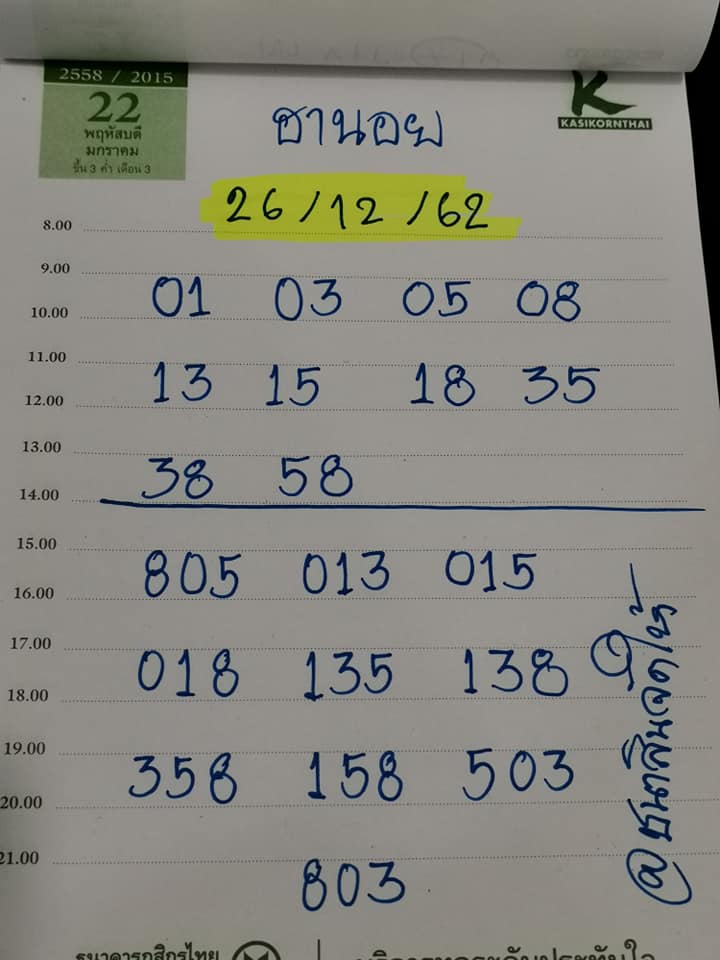 2558 / 2015
22
พฤหัสบดี
มกราคม
ขึ้น 3 ค่ำ เดือน 3
K
KASIKORNTHAI
ฮานอย
26/12/62
8.00
9.00
01 03 05 08
10.00
11.00
13 15 18 35
12.00
13.00
38 58
14.00
15.00
805 013 015
16.00
17.00
018 135 138
18.00
19.00
358 158 503
20.00
21.00
803
ธนาคารกสิกรไทย
บริการทุกระดับประทับใจ